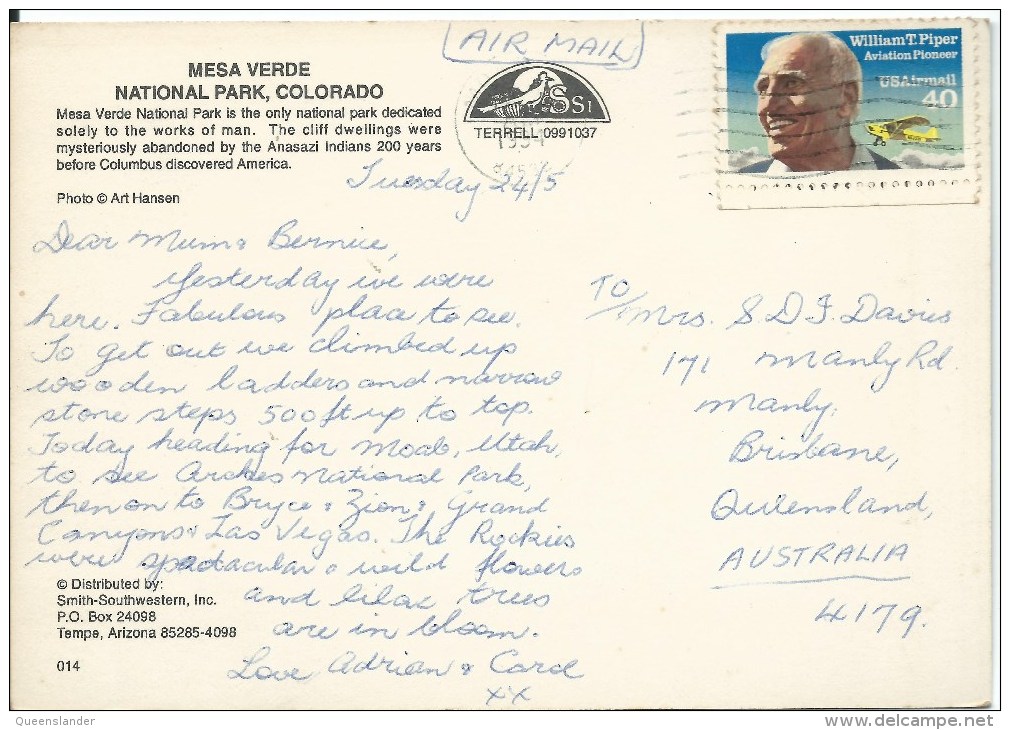 AIR MAIL
MESA VERDE
NATIONAL PARK, COLORADO
Mesa Verde National Park is the only national park dedicated
solely to the works of man. The cliff dwellings were
mysteriously abandoned by the Anasazi Indians 200 years
before Columbus discovered America.
Photo © Art Hansen
SSI
TERRELL 0991037
1994
William T. Piper
Aviation Pioneer
USAirmail
40
Tuesday 24/5
Dear Mum & Bernice,
Yesterday we were
here. Fabulous place to see.
To get out we climbed up
wooden ladders and narrow
stone steps 500ft up to top.
Today heading for Moab, Utah,
to see Arches National Park,
then on to Bryce & Zion & Grand
Canyons & Las Vegas. The Rockies
were spectacular & wild flowers
and lilac trees
are in bloom.
Love Adrian & Carol
xx
TO/ Mrs. S D F. Davies
171 Manly Rd.
Manly.
Brisbane,
Queensland,
AUSTRALIA
4179.
© Distributed by:
Smith-Southwestern, Inc.
P.O. Box 24098
Tempe, Arizona 85285-4098
014
Queenslander
delcampe.net